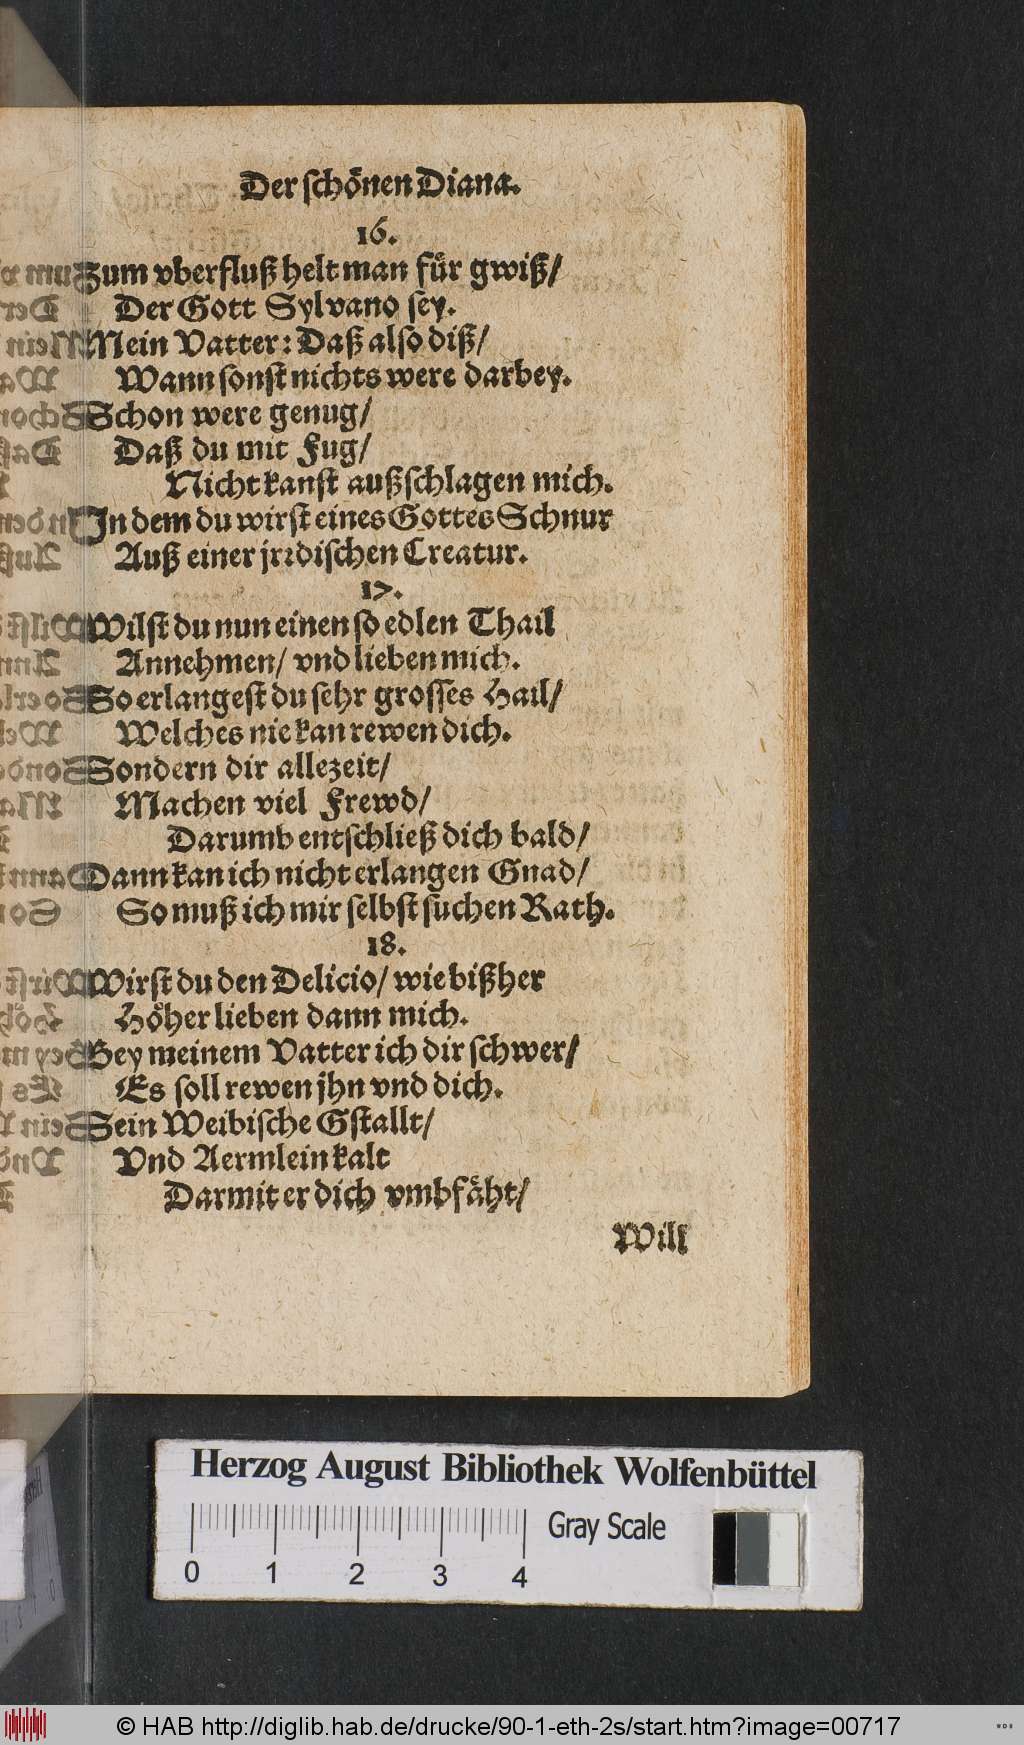 Der schönen Diana.
16.
Zum vberfluß helt man für gwiß/
Der Gott Sylvano sey.
Mein Vatter: Daß also diß/
Wann sonst nichts were darbey.
Schon were genug/
Daß du mit Fug/
Nicht kanst außschlagen mich.
In dem du wirst eines Gottes Schnur
Auß einer jrꝛdischen Creatur.
17.
Wilst du nun einen so edlen Thail
Annehmen/ vnd lieben mich.
So erlangest du sehr grosses Hail/
Welches nie kan rewen dich.
Sondern dir allezeit/
Machen viel Frewd/
Darumb entschließ dich bald/
Dann kan ich nicht erlangen Gnad/
So muß ich mir selbst suchen Rath.
18.
Wirst du den Delicio/ wie bißher
Höher lieben dann mich.
Bey meinem Vatter ich dir schwer/
Es soll rewen jhn vnd dich.
Sein Weibische Gstallt/
Vnd Aermlein kalt
Darmit er dich vmbfäht/
Will
Herzog August Bibliothek Wolfenbüttel
0 1 2 3 4 Gray Scale
© HAB http://diglib.hab.de/drucke/90-1-eth-2s/start.htm?image=00717